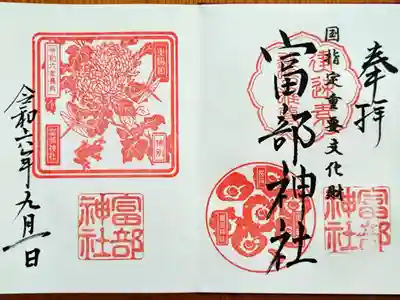 奉拝
国指定重要文化財
富部神社
富部
神社
令和六年九月一日
特別
富部神社
富部
神社